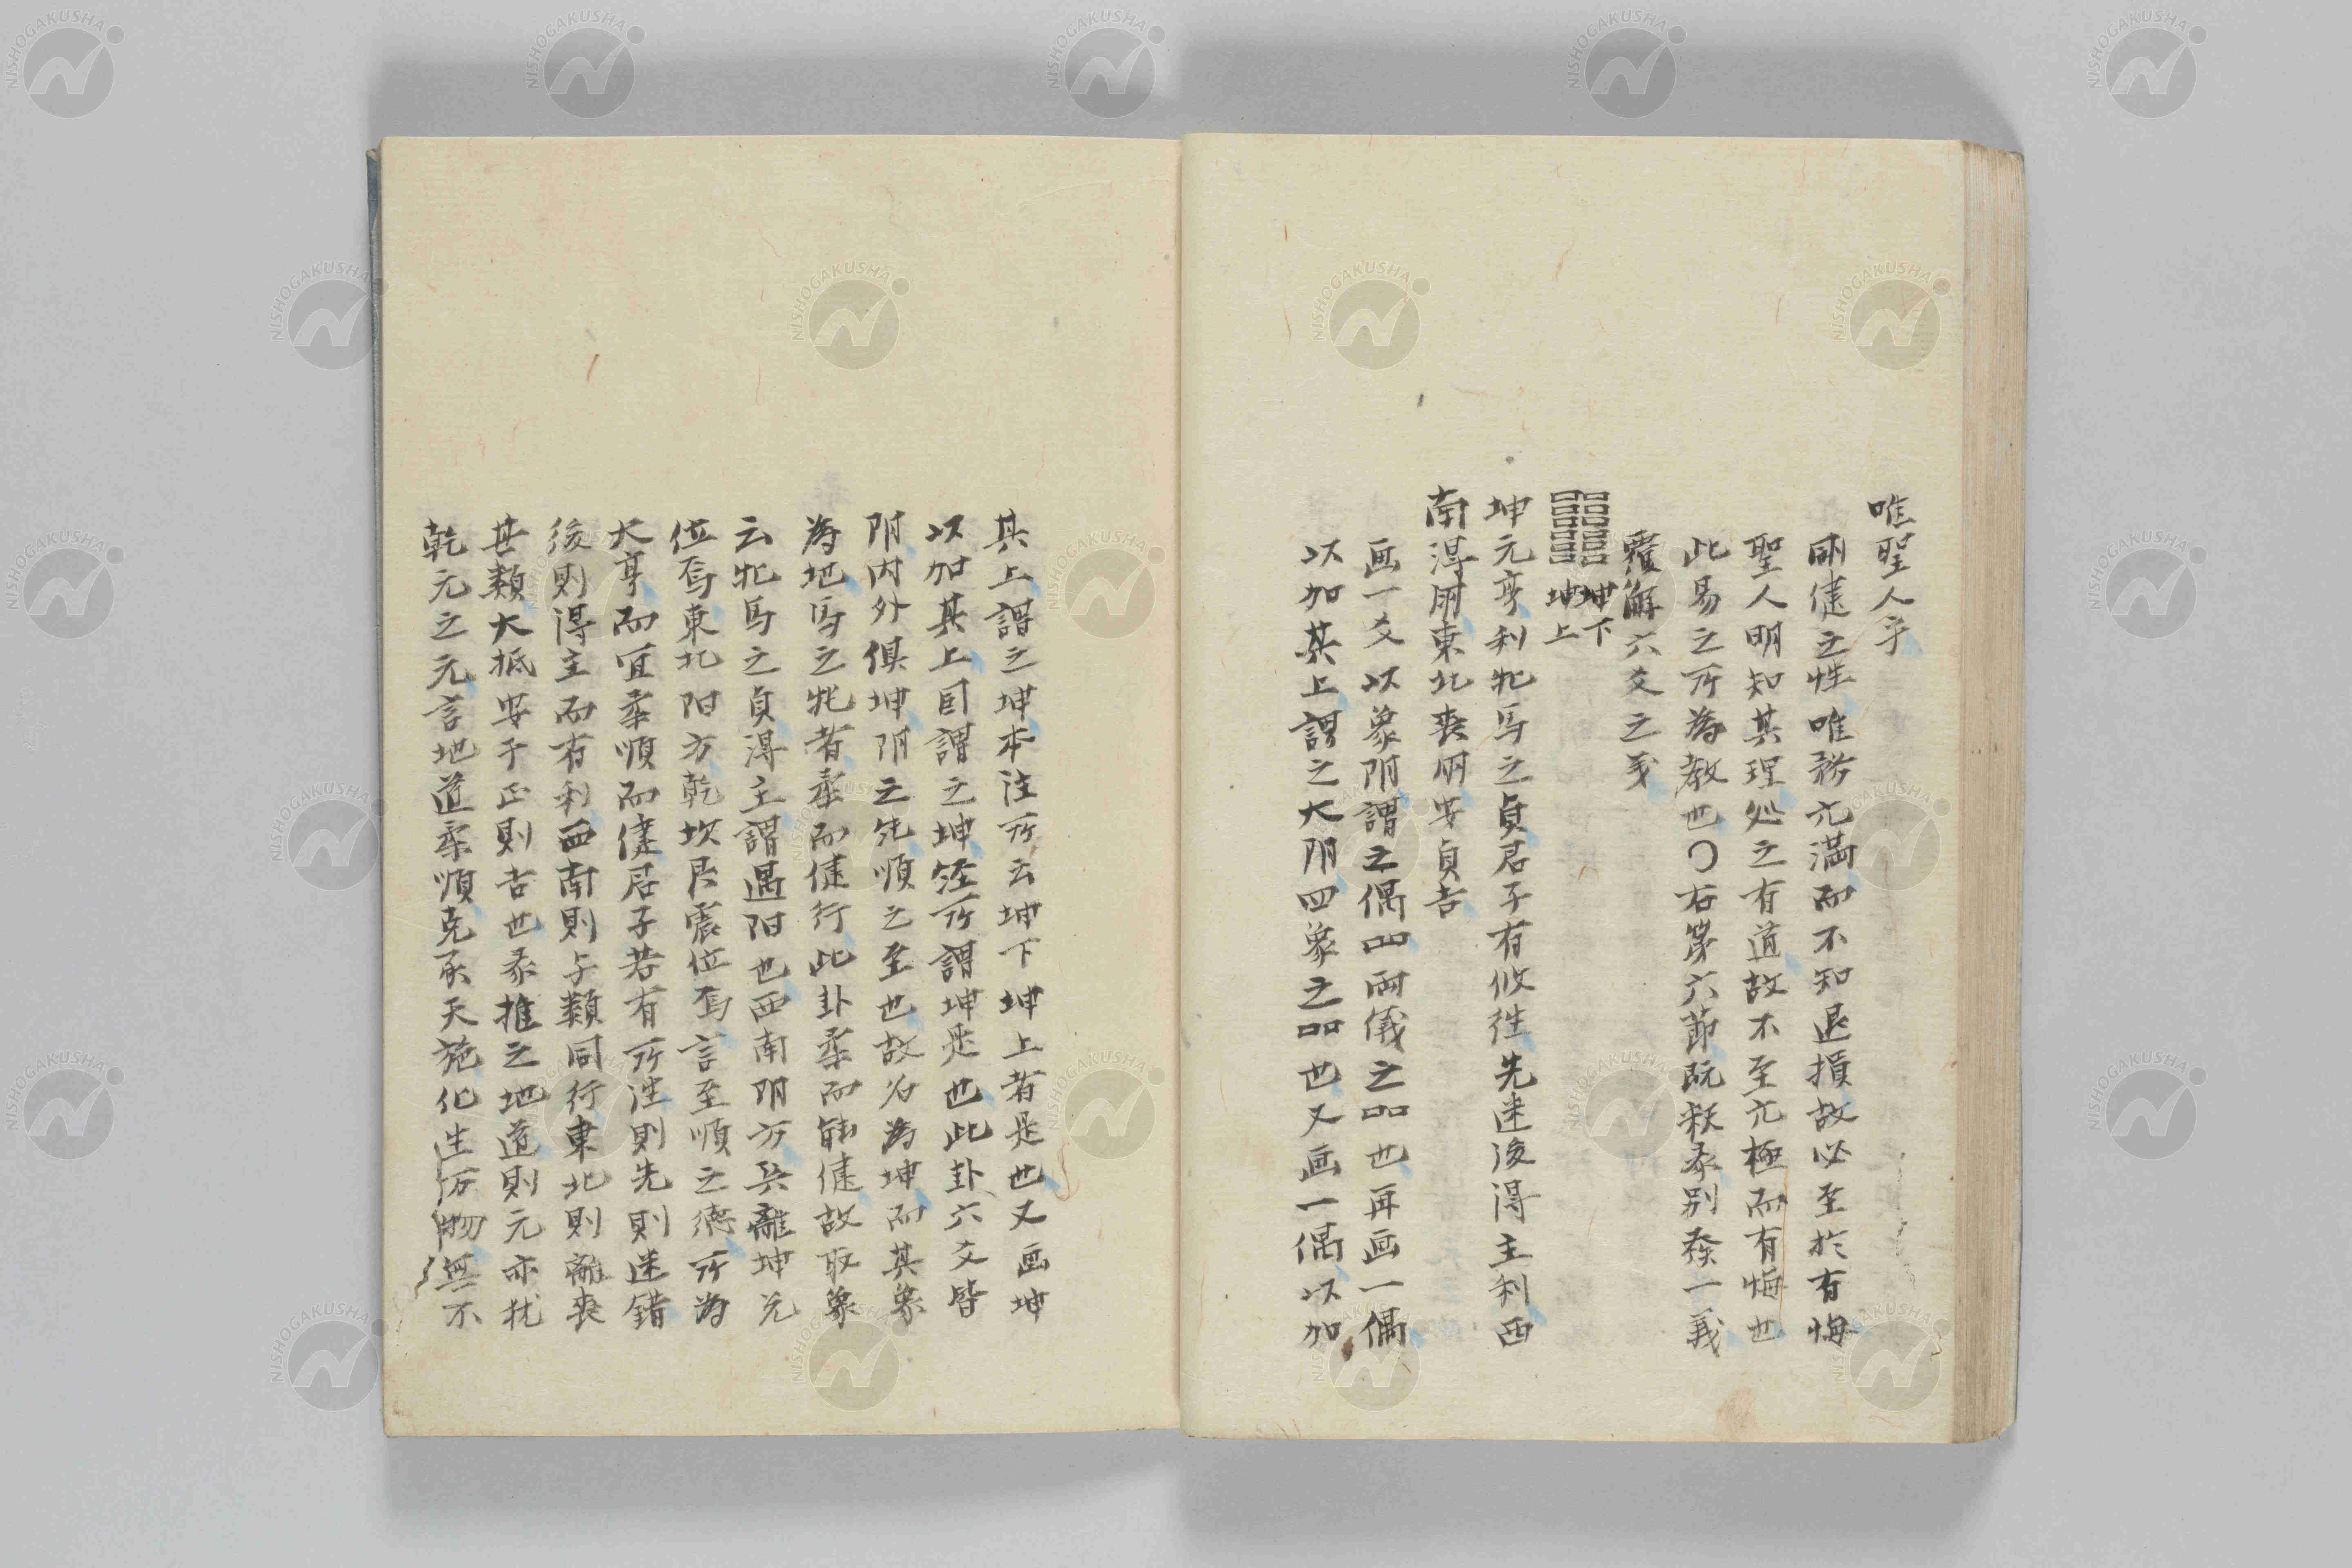 唯聖人乎
剛健之性唯務亢満而不知退損故必至於有悔
聖人明知其理処之有道故不至亢極而有悔也
此易之所為教也〇右第六節既釈彖別発一義
覆解六爻之義
坤下
坤上
坤元亨利牝馬之貞君子有攸往先迷後得主利西
南得朋東北喪朋安貞吉
画一爻以象阴謂之偶 両儀之 也再画一偶
以加其上謂之大阴四象之 也又画一偶以加
其上謂之坤本注所云坤下坤上者是也又画坤
以加其上目謂之坤経所謂坤是也此卦六爻皆
阴内外倶坤阴之純順之至也故名為坤而其象
為地馬之牝者柔而健行此卦柔而能健故取象
云牝馬之貞得主謂遇阳也西南阴方巽離坤兌
位焉東北阳方乾坎艮震位焉言至順之徳所為
大亨而宜柔順而健君子若有所往則先則迷錯
後則得主而有利西南則与類同行東北則離喪
其類大抵安于正則吉也彖推之地道則元亦犹
乾元之元言地道柔順克承天施化生万物無不
NISHOGAKUSHA